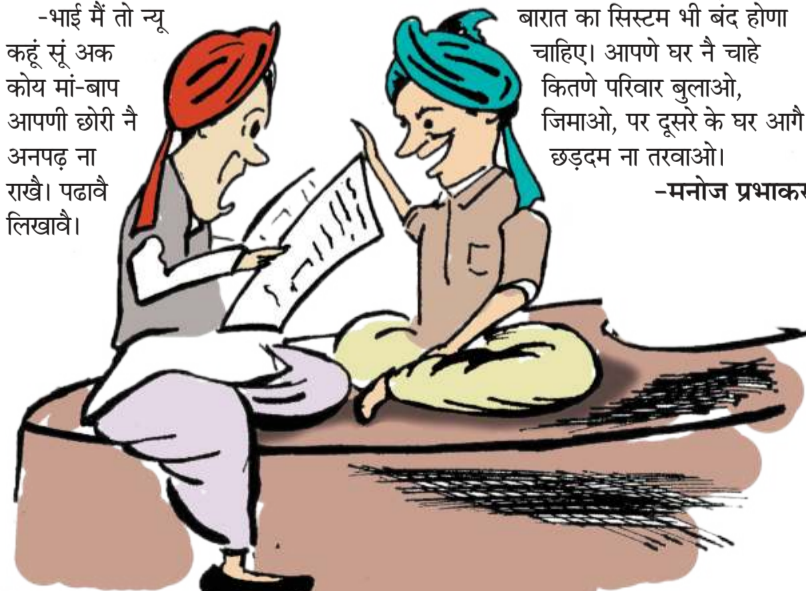 -भाई मैं तो न्यू
कहूं सूं अक
कोय मां-बाप
आपणी छोरी नै
अनपढ़ ना
राखै। पढावै
लिखावै।
बारात का सिस्टम भी बंद होणा
चाहिए। आपणे घर नै चाहे
कितणे परिवार बुलाओ,
जिमाओ, पर दूसरे के घर आगै
छड़दम ना तरवाओ।
-मनोज प्रभाकर